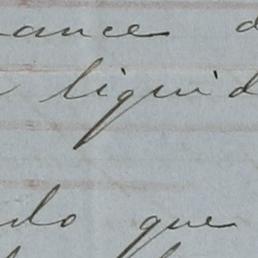 ance d
liquid
do que